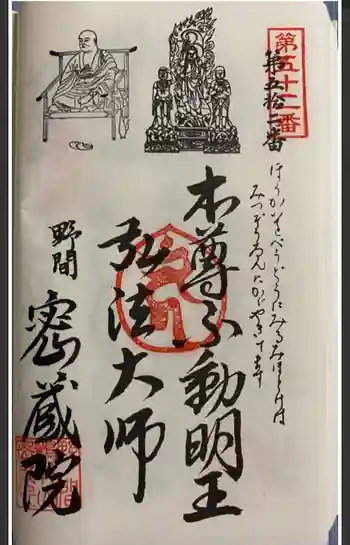 第五十二番
第五拾二番
ほうかいをべうどうにみるみほとけは
みつぞうゐんにかゞやきてます
本尊不動明王
弘法大師
野間
密蔵院